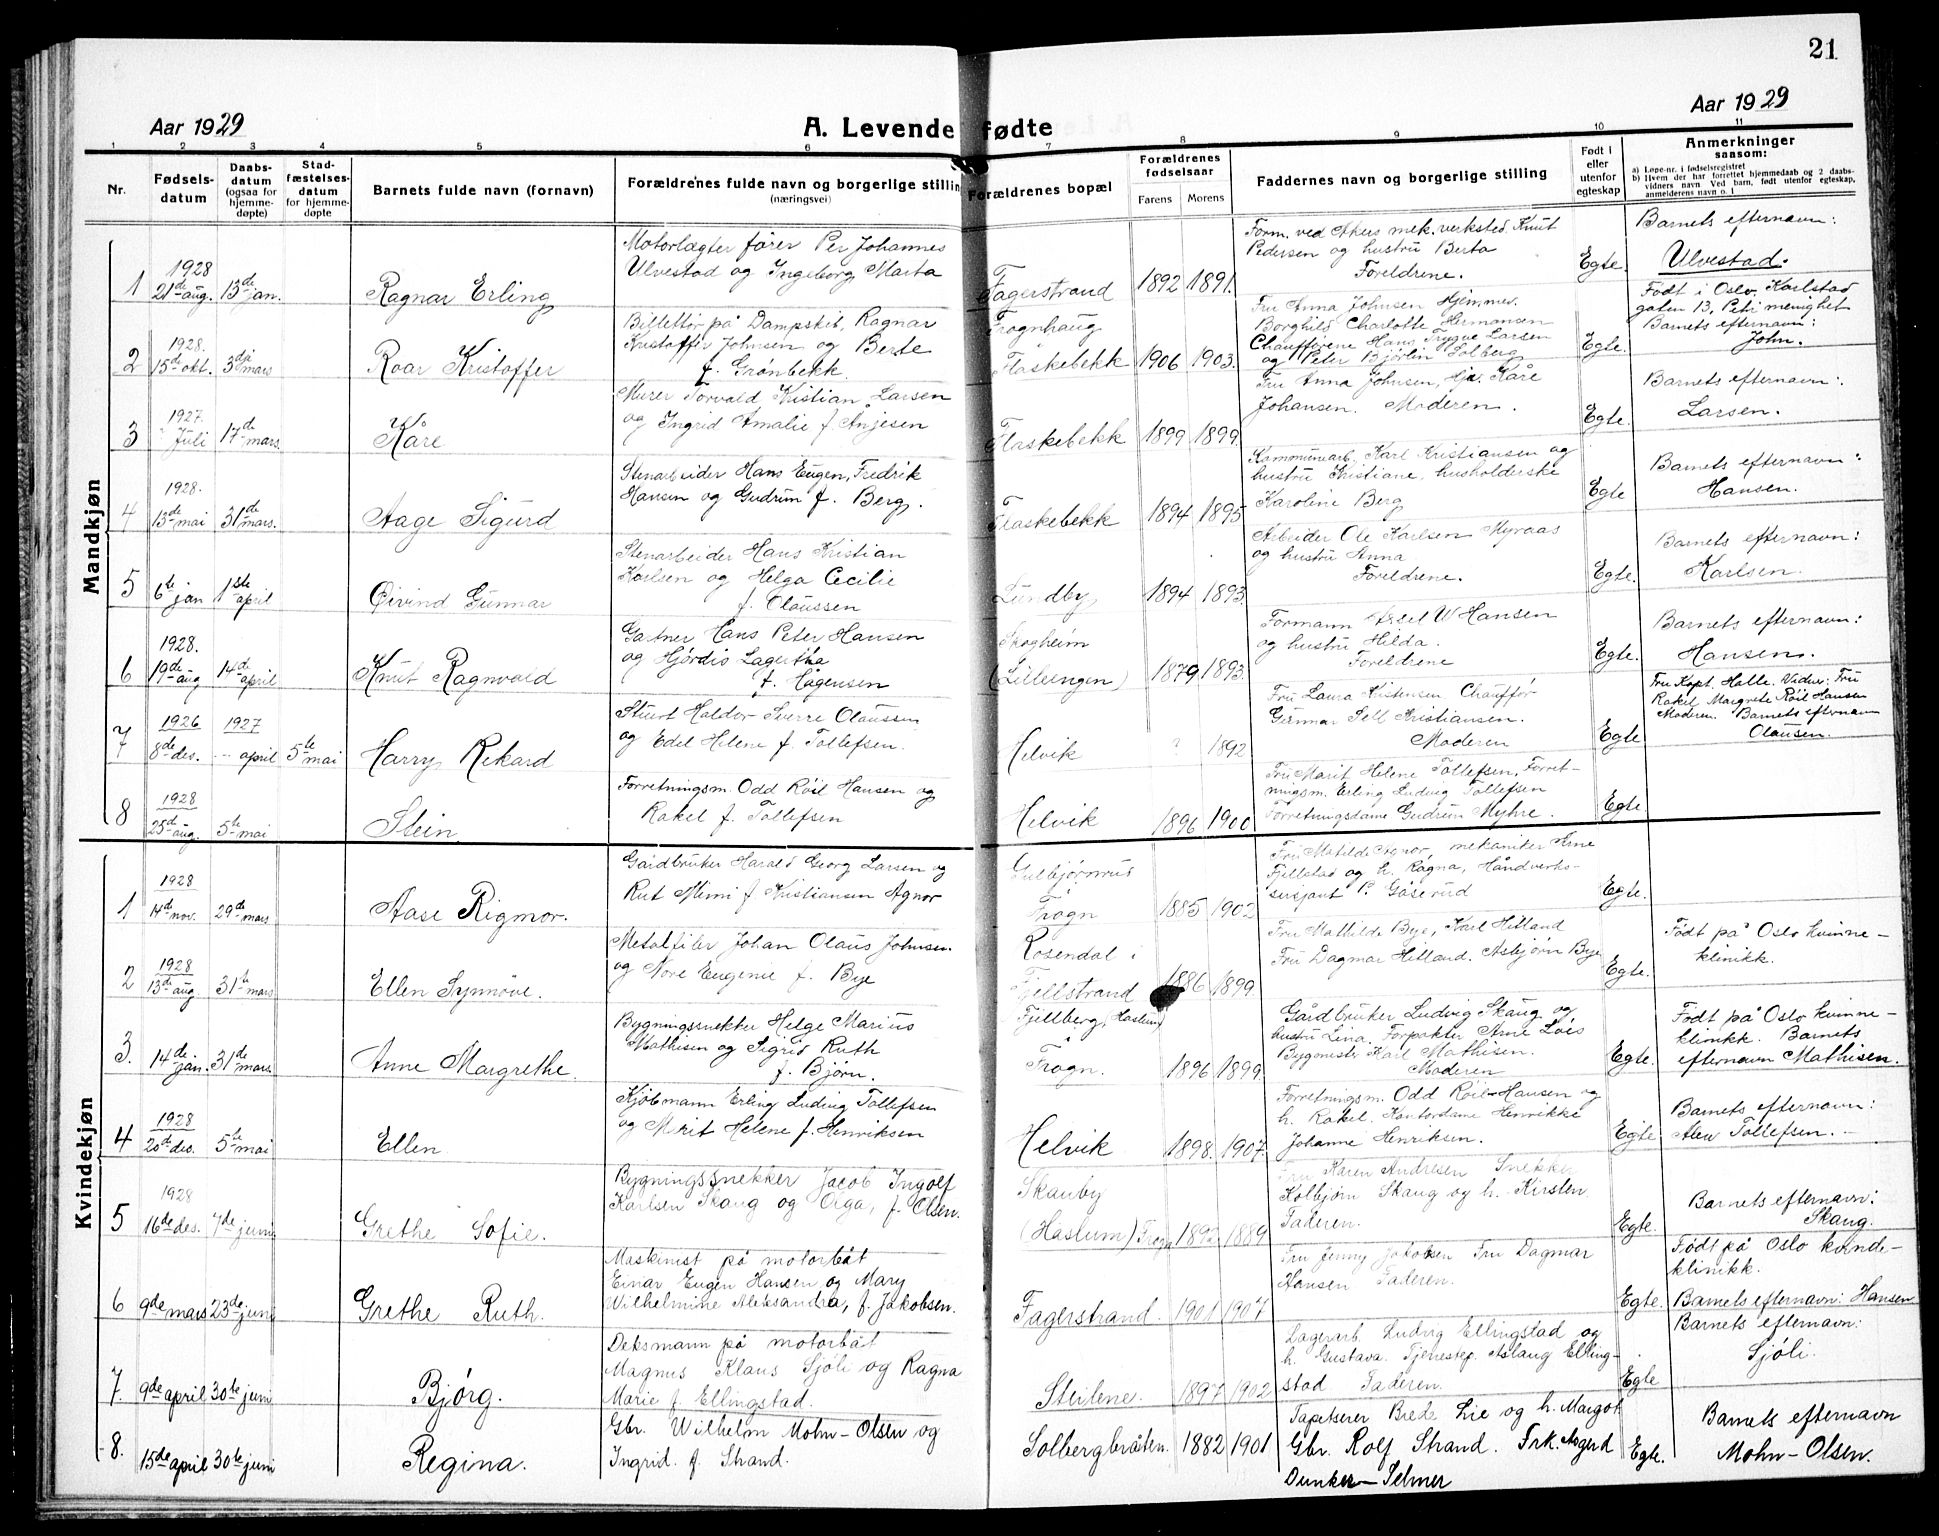 21
Aar 1929
A. Levende fødte
Aar 1929
1 2 3 4 5 6 7 8 9 10 11
Nr.
Fødsels-
datum
Daabs-
datum
(ogsaa for
hjemme-
døpte)
Stad-
fæstelses-
datum
for hjemme-
døpte
Barnets fulde navn (fornavn)
Forældrenes fulde navn og borgerlige stilling
(næringsvei)
Forældrenes bopæl
Forældrenes
fødselsaar
Farens
Morens
Faddernes navn og borgerlige stilling
Født i
eller
utenfor
egteskap
Anmerkninger
saasom:
a) Løpe-nr. i fødselsregistret
b) Hvem der har forrettet hjemmedaab og 2 daabs-
vidners navn Ved barn, født utenfor egteskap,
anmelderens navn o. l
Mandkjøn
1
1928
21de aug.
13de jan.
Ragnar Erling
Motorlægter fører Per Johannes
Ulvestad og Ingeborg Marta
Fagerstrand
1892
1891.
Form. ved Akers mek. verksted. Knut
Pedersen og hustru Berta
Foreldrene.
Egte.
Barnets efternavn:
Ulvestad.
2
1928.
15de okt.
3dje mars
Roar Kristoffer
Billettør på Dampskib, Ragnar
Kristoffer Johnsen og Berte
f. Grønbekk.
Frognhaug
Flaskebekk
1906
1903.
Fru Anna Johnsen Hjemmev.
Borghild Charlotte Hermansen
Chaufførene Hans Trygve Larsen
og Peter Bjørlin Solberg
Egte.
Født i Oslo, Karlstad
gaten 13, Petri menighet
Barnets efternavn:
John.
3
1927.
Juli
17de mars.
Kåre
Murer Torvald Kristian Larsen
og Ingrid Amalie f. Anjesen
Flaskebekk
1899
1899.
Fru Anna Johnsen, Hj. Kåre
Johansen. Moderen.
Egte.
Barnets efternavn:
Larsen.
4
1928.
13de mai
31de mars.
Aage Sigurd
Stenarbeider Hans Eugen, Fredrik
Hansen og Gudrun f. Berg.
Flaskebekk
1894
1895
Kommunearb. Karl Kristiansen og
hustru Kristiane, husholderske
Karoline Berg
Egte
Barnets efternavn:
Hansen.
5
6te jan
1ste april
Øivind Gunnar
Stenarbeider Hans Kristian
Karlsen og Helga Cecilie
f. Olaussen
Lundby
1894
1893.
Arbeider Ole Karlsen Myraas
og hustru Anna
Foreldrene.
Egte.
Barnets efternavn:
Karlsen.
6
1928.
19de aug
14de april
Knut Ragnvald
Gartner Hans Peter Hansen
og Hjørdis Lagertha
f. Hågensen
Skogheim
(Lillengen)
1879
1893.
Formann Aksel W Hansen
og hustru Hilda.
Foreldrene
Egte.
Barnets efternavn:
Hansen.
7
1926
8de des.
1927
-- april
5te mai
Harry Rikard
Stuert Haldor Sverre Olaussen
og Edel Helene f. Tollefsen.
Helvik
?
1892
Fru Laura Kistensen. Chauffør
Gunnar Sell Kristiansen.
Moderen
Egte
Fru Kapt. Halle. Vidner: Fru
Rakel Margrete Røil Hansen
Moderen. Barnets efternavn
Olausen.
8
1928
25de aug.
5te mai
Stein
Forretningsm. Odd Røil Hansen og
Rakel f. Tollefsen
Helvik
1896
1900
Fru Marit Helene Tollefsen, Forret-
ningsm. Erling Ludvig Tollefsen
Forretningsdame Gudrun Myhre.
Egte
Kvindekjøn
1
1928
14de nov.
29de mars
Aase Rigmor.
Gaardbruker Harald Georg Larsen og
Rut Mimi f. Kristiansen Agnor
Gulbjørnrud
i
Frogn
1885
1902
Fru Matilde Agnor, mekaniker Arne
Fjellstad og h. Ragna, Håndverks-
sersjant P. Gåserud
Egte.
2
1928
13de aug.
31te mars
Ellen Synnøve.
Metalfiler Johan Olaus Johnsen
og Nore Eugenie f. Bye
Rosendal i
Fjellstrand
1886
1899.
Fru Mathilde Bye, Karl Hitland
Fru Dagmar Hitland. Asbjørn Bye
Egte.
Født på Oslo kvinne-
klinikk.
3.
14de jan.
31de mars
Anne Margrethe.
Bygningssnekker Helge Marius
Mathisen og Sigrid Ruth
f. Bjørn.
Fjellberg, (Haslum)
i
Frogn.
1896
1899.
Gårdbruker Ludvig Skaug og
hustru Lina, Forpakter Arne Løes
Bygmstr. Karl Mathisen.
Moderen
Egte.
Født på Oslo kvinne-
klinikk. Barnets
efternavn Mathisen.
4
1928
20de des.
5te mai
Ellen
Kjøbmann Erling Ludvig Tollefsen
og Marit Helene f. Henriksen
Helvik
1898.
1907.
Forretningsm. Odd Røil-Hansen og
h. Rakel, Kontordame Henrikke
Johanne Henriksen.
Egte
Barnets efternavn:
Tollefsen.
5
1928
16de des.
7de juni
Grethe Sofie.
Bygningssnekker Jacob Ingolf
Karlsen Skaug og Olga, f. Olsen.
Skauby
(Haslum) Frogn
1892
1889
Fru Karen Andresen Snekker
Kolbjørn Skaug og h. Kirsten
Faderen.
Egte.
Barnets efternavn:
Skaug.
6
9de mars
23de juni
Grethe Ruth.
Maskinist på motorbåt
Einar Eugen Hansen og Mary
Wilhelmine Aleksandra, f. Jakobsen.
Fagerstrand.
1901
1907
Fru Jenny Jakobsen Fru Dagmar
Hansen Faderen.
Egte.
Født på Oslo kvinde-
klinikk.
Barnets efternavn: Hansen
7.
9de april
30te juni
Bjørg.
Deksmann på motorbåt
Magnus Klaus Sjøli og Ragna
Marie f. Ellingstad.
Steilene.
1897
1902
Lagerarb. Ludvig Ellingstad og
h. Gustava. Tjenestep. Aslaug Elling-
stad Faderen.
Egte
Barnets efternavn:
Sjøli.
8.
15de april
30te juni
Regina.
Gbr. Wilhelm Mohn-Olsen og
Ingrid f. Strand.
Solbergbråten.
1882
1901
Tapetserer Brede Lie og h. Margot
Gbr. Rolf Strand. Frk. Asgerd
Dunker-Selmer
Egte.
Barnets efternavn
Mohn-Olsen.